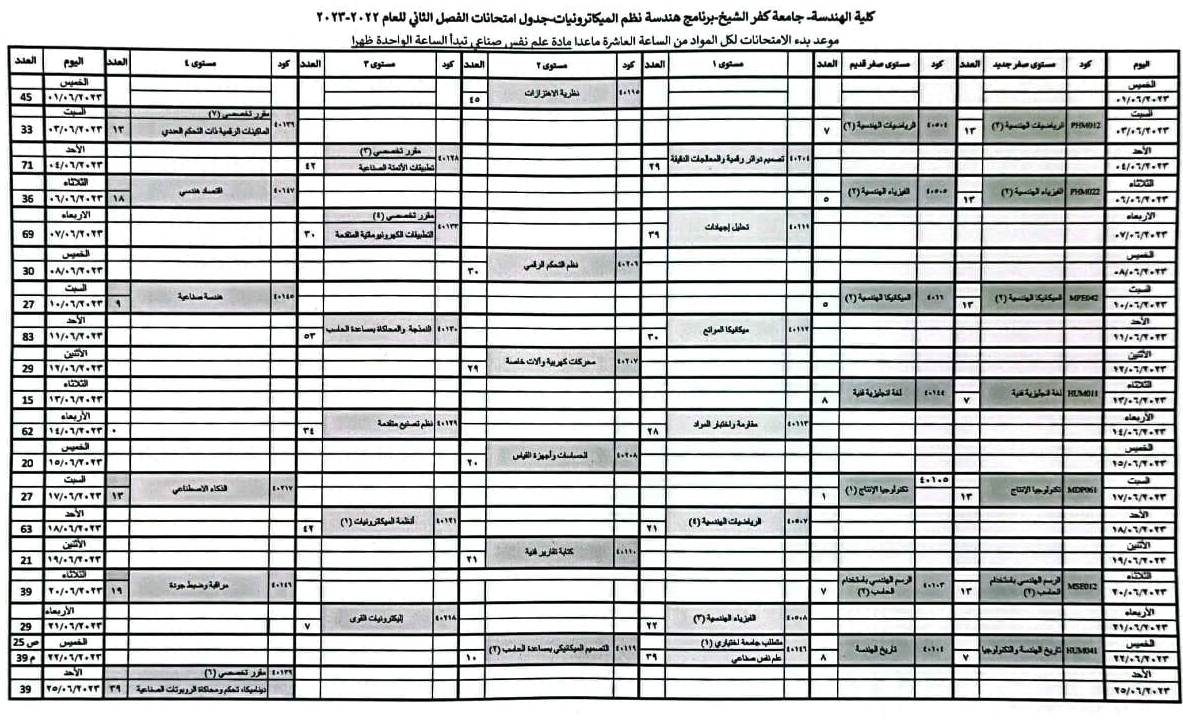 كلية الهندسة- جامعة كفر الشيخ-برنامج هندسة نظم الميكاترونيات-جدول امتحانات الفصل الثاني للعام ٢٠٢٢-٢٠٢٣
موعد بدء الامتحانات لكل المواد من الساعة العاشرة ماعدا مادة علم نفس صناعي تبدأ الساعة الواحدة ظهرا
اليوم كود مستوى صفر جديد العدد كود مستوى صفر قديم العدد كود مستوى ١ العدد كود مستوى ٢ العدد كود مستوى ٣ العدد كود مستوى ٤ العدد اليوم العدد
الخميس ٠١/٠٦/٢٠٢٣ ٤٠١١٥ نظرية الاهتزازات ٤٥ الخميس ٠١/٠٦/٢٠٢٣ 45
السبت ٠٣/٠٦/٢٠٢٣ PHM012 الرياضيات الهندسية (٢) ١٣ ٤٠٥٠٤ الرياضيات الهندسية (٢) ٧ ٤٠١٣٦ مقرر تخصصي (٧) الماكينات الرقمية ذات التحكم العددي ١٣ السبت ٠٣/٠٦/٢٠٢٣ 33
الأحد ٠٤/٠٦/٢٠٢٣ ٤٠٢٠٤ تصميم دوائر رقمية والمعالجات الدقيقة ٢٩ ٤٠١٢٨ مقرر تخصصي (٣) تطبيقات الأتمتة الصناعية ٤٢ الأحد ٠٤/٠٦/٢٠٢٣ 71
الثلاثاء ٠٦/٠٦/٢٠٢٣ PHM022 الفيزياء الهندسية (٢) ١٣ ٤٠٥٠٥ الفيزياء الهندسية (٢) ٥ ٤٠١٤٧ اقتصاد هندسي ١٨ الثلاثاء ٠٦/٠٦/٢٠٢٣ 36
الاربعاء ٠٧/٠٦/٢٠٢٣ ٤٠١١١ تحليل إجهادات ٣٩ ٤٠١٣٣ مقرر تخصصي (٤) التطبيقات الكهرونيوماتية المتقدمة ٣٠ الاربعاء ٠٧/٠٦/٢٠٢٣ 69
الخميس ٠٨/٠٦/٢٠٢٣ ٤٠٢٠٦ نظم التحكم الرقمي ٣٠ الخميس ٠٨/٠٦/٢٠٢٣ 30
السبت ١٠/٠٦/٢٠٢٣ MPE042 الميكانيكا الهندسية (٢) ١٣ الميكانيكا الهندسية (٢) ٥ ٤٠١٤٥ هندسة صناعية ٩ السبت ١٠/٠٦/٢٠٢٣ 27
الأحد ١١/٠٦/٢٠٢٣ ٤٠١١٢ ميكانيكا الموائع ٣٠ ٤٠١٣٠ النمذجة والمحاكاة بمساعدة الحاسب ٥٣ الأحد ١١/٠٦/٢٠٢٣ 83
الأثنين ١٢/٠٦/٢٠٢٣ ٤٠٢٠٧ محركات كهربية وآلات خاصة ٢٩ الأثنين ١٢/٠٦/٢٠٢٣ 29
الثلاثاء ١٣/٠٦/٢٠٢٣ HUM011 لغة انجليزية فنية ٧ ٤٠١٤٤ لغة انجليزية فنية ٨ الثلاثاء ١٣/٠٦/٢٠٢٣ 15
الأربعاء ١٤/٠٦/٢٠٢٣ ٤٠١١٣ مقاومة واختبار المواد ٢٨ ٤٠١٢٩ نظم تصنيع متقدمة ٣٤ ٠ الأربعاء ١٤/٠٦/٢٠٢٣ 62
الخميس ١٥/٠٦/٢٠٢٣ ٤٠٢٠٨ الحساسات وأجهزة القياس ٢٠ الخميس ١٥/٠٦/٢٠٢٣ 20
السبت ١٧/٠٦/٢٠٢٣ MDP061 تكنولوجيا الإنتاج ١٣ ٤٠١٠٥ تكنولوجيا الإنتاج (١) ١ ٤٠٢١٧ الذكاء الاصطناعي ١٣ السبت ١٧/٠٦/٢٠٢٣ 27
الأحد ١٨/٠٦/٢٠٢٣ ٤٠٥٠٧ الرياضيات الهندسية (٤) ٢١ ٤٠١٢١ أنظمة الميكاترونيات (١) ٤٢ الأحد ١٨/٠٦/٢٠٢٣ 63
الأثنين ١٩/٠٦/٢٠٢٣ ٤٠١١٠ كتابة تقارير فنية ٢١ الأثنين ١٩/٠٦/٢٠٢٣ 21
الثلاثاء ٢٠/٠٦/٢٠٢٣ MSE012 الرسم الهندسي باستخدام الحاسب (٢) ١٣ ٤٠١٠٣ الرسم الهندسي باستخدام الحاسب (٢) ٧ ٤٠١٤٦ مراقبة وضبط جودة ١٩ الثلاثاء ٢٠/٠٦/٢٠٢٣ 39
الأربعاء ٢١/٠٦/٢٠٢٣ ٤٠٥٠٨ الفيزياء الهندسية (٣) ٢٢ ٤٠٢١٨ إليكترونيات القوى ٧ الأربعاء ٢١/٠٦/٢٠٢٣ 29
الخميس ٢٢/٠٦/٢٠٢٣ HUM041 تاريخ الهندسة والتكنولوجيا ٧ ٤٠١٠٤ تاريخ الهندسة ٨ ٤٠١٤٦ متطلب جامعة اختياري (١) علم نفس صناعي ٣٩ ٤٠١١٩ التصميم الميكانيكي بمساعدة الحاسب (٢) ١٠ الخميس ٢٢/٠٦/٢٠٢٣ ص 25 م 39
الأحد ٢٥/٠٦/٢٠٢٣ ٤٠١٣٩ مقرر تخصصي (٦) ديناميكا، تحكم ومحاكاة الروبوتات الصناعية ٣٩ الأحد ٢٥/٠٦/٢٠٢٣ 39